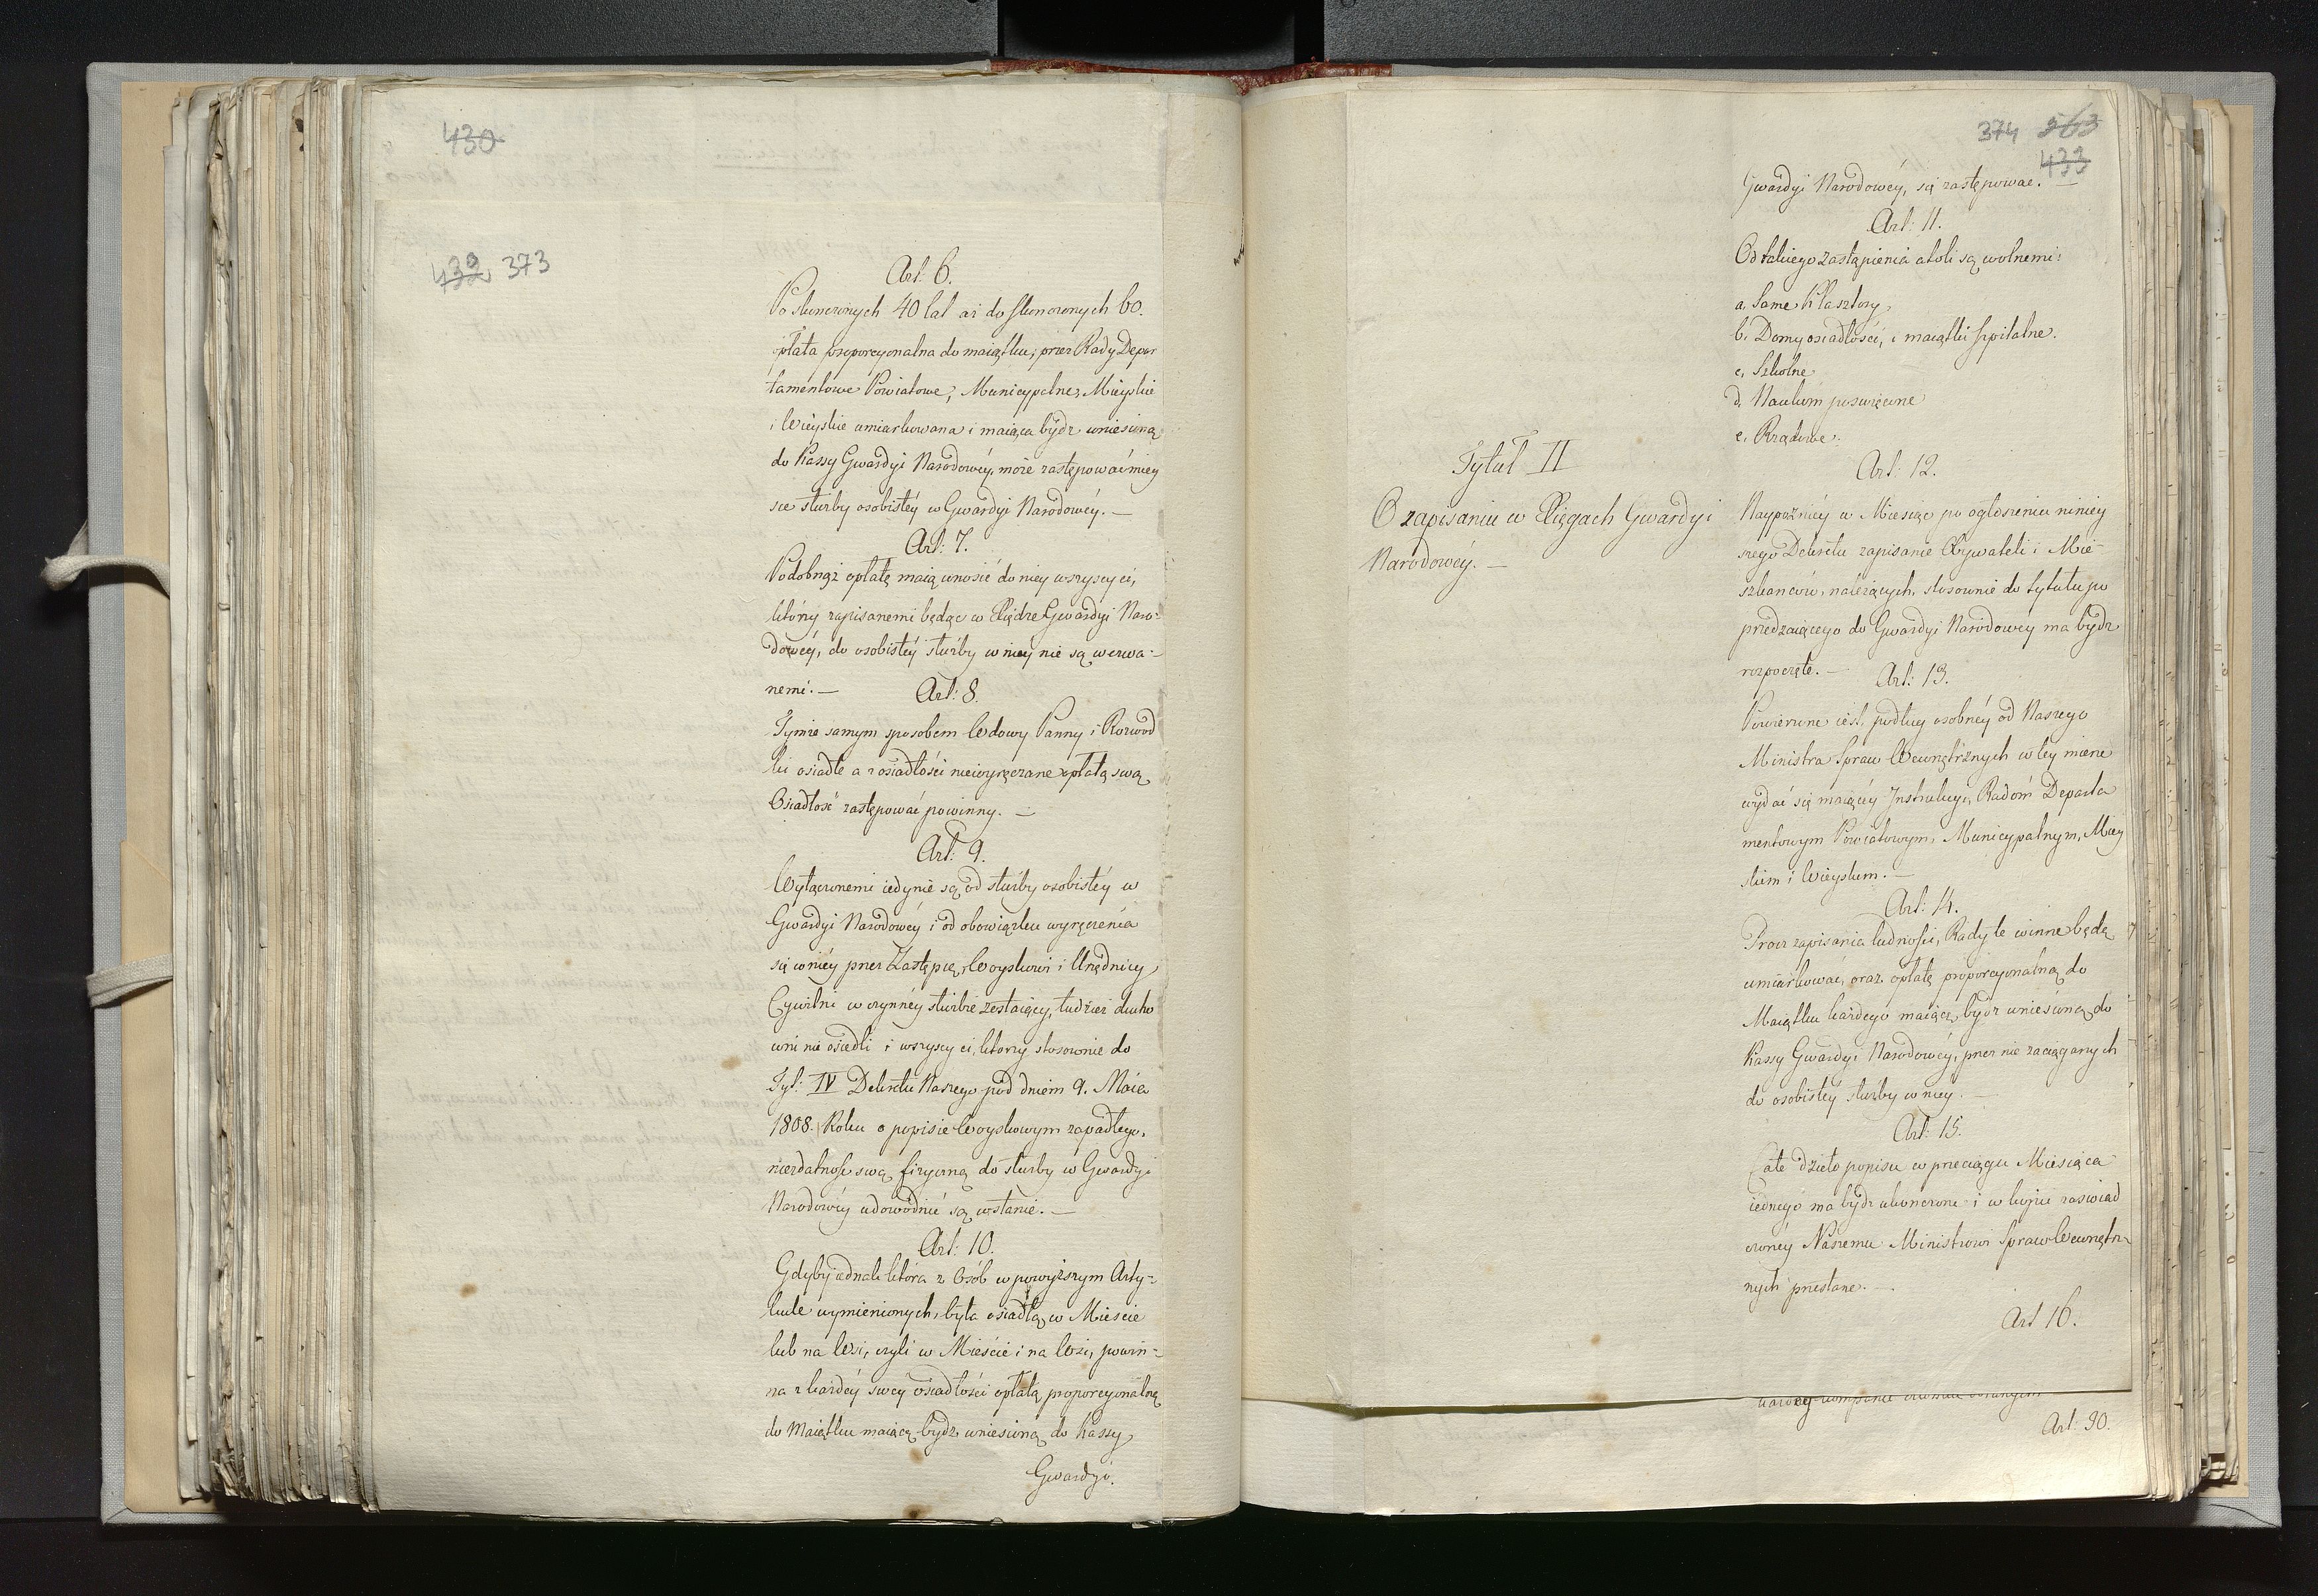 430
432 373
Art. 6.
Po skonczonych 40 lat aż do skonczonych 60.
opłata proporcyonalna do maiątku, przez Rady Depar
tamentowe Powiatowe, Municypalne, Mieyskie
i Wieyskie umiarkowana i maiąca bydź wniesioną
do Kassy Gwardyi Narodowéy, może zastępować miey
sce służby osobistéy w Gwardyi Narodowéy. —
Art: 7.
Podobnąż opłatę maią wnosić do niey wszyscy ci,
którzy zapisanemi będąc w Xiędze Gwardyi Naro:
dowéy, do osobistéy służby w niey nie są wezwa:
nemi. —
Art: 8.
Tymże samym sposobem Wdowy Panny i Rozwod
ki osiadłe a z osiadłości niewyręczane opłatą swą
Osiadłość zastępować powinny. —
Art: 9.
Wyłączonemi iedynie są od służby osobistéy w
Gwardyi Narodowéy i od obowiązku wyręczenia
się w niéy przez Zastępcę, Woyskowi i Urzędnicy
Cywilni w czynnéy służbie zostaiący, tudzież ducho
wni nie osiedli i wszyscy ci, którzy stosownie do
Tyt: IV Dekretu Naszego pod dniem 9. Maia
1808. Roku o popisie Woyskowym zapadłego,
niezdatność swą fizyczną do służby w Gwardyi
Narodowéy udowodnić są wstanie. —
Art: 10.
Gdyby iednak która z Osób w powyższym Arty:
kule wymienionych, była osiadłą w Miescie
lub na Wsi, czyli w Mieście i na Wsi, powin:
na z każdéy swey osiadłości opłatą proporcyonalną
do Maiątku maiącą bydź wniesioną do Kassy
Gwardyi.
374 563
433
Gwardyi Narodowéy, się zastępować. —
Art: 11.
Od takiego zastąpienia atoli są wolnemi:
a. Same Klasztory
b. Domy osiadłości, i maiątki szpitalne.
c. Szkolne
d. Naukom poswięcone
e. Rządowe.
Tytuł II
O zapisaniu w Xięgach Gwardyi
Narodowéy. —
Art: 12.
Naypoźniéy w Miesiąc po ogłoszeniu niniey
szego Dekretu zapisanie Obywateli i Mie-
szkancow, należących, stosownie do tytułu po
przedzaiącego do Gwardyi Narodowey ma bydź
rozpoczęte. —
Art: 13.
Powierzone iest, podług osobnéy od Naszego
Ministra Spraw Wewnętrznych w tey mierze
wydać się maiącéy Instrukcyi, Radóm Departa
mentowym Powiatowym, Municypalnym, Miey
skim i Wieyskim. —
Art: 14.
Procz zapisania ludności, Rady te winne będą
umiarkować, oraz opłatę proporcyonalną do
Maiątku każdego maiącą bydź wniesioną do
Kassy Gwardyi Narodowéy, przez nie zaciąganych
do osobistéy służby w niey. —
Art: 15.
Całe dzieło popisu w przeciągu Miesiąca
iednego ma bydź ukonczone i w kopii zaswiad
czonéy Naszemu Ministrowi Spraw Wewnętrz
nych przesłane. —
Art 16.
Art: 90.